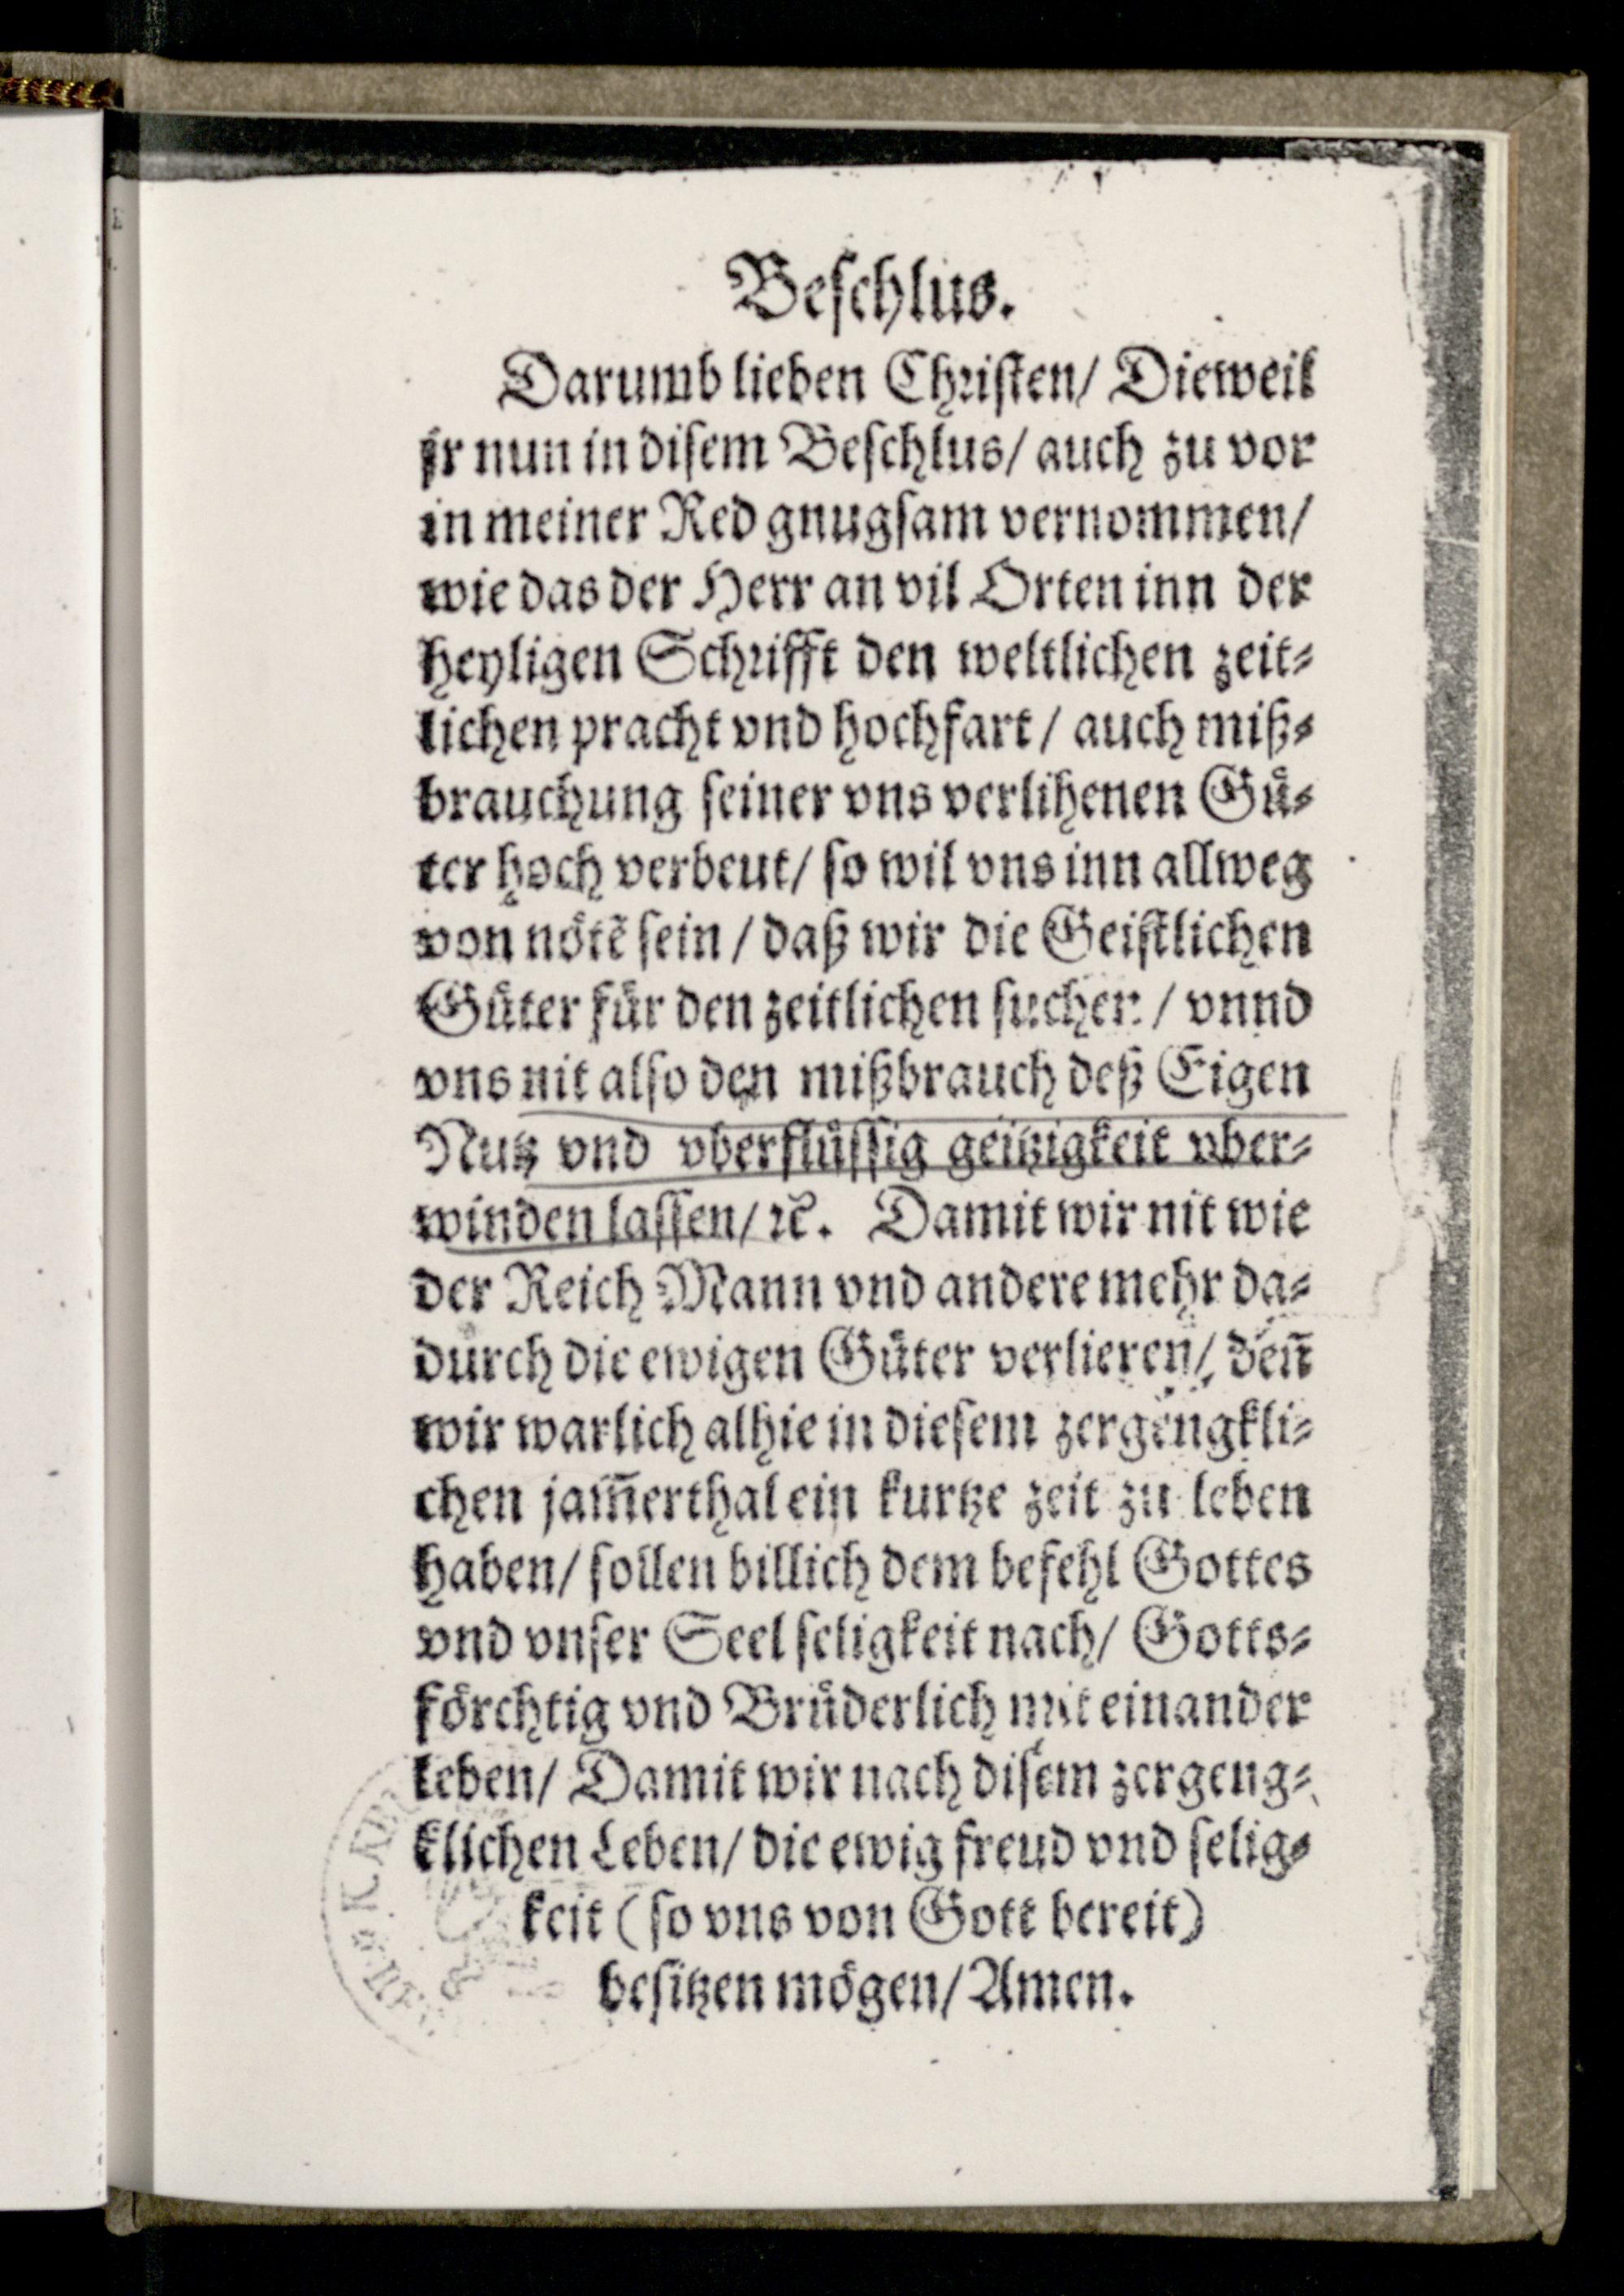 Beſchlus.
Darumb lieben Chriſten/ Dieweil
jr nun in diſem Beſchlus/ auch zu vor
in meiner Red gnugſam vernommen/
wie das der Herr an vil Orten inn der
heyligen Schrifft den weltlichen zeit⸗
lichen pracht vnd hochfart/ auch miß⸗
brauchung ſeiner vns verlihenen Guͤ⸗
ter hoch verbeut/ ſo wil vns inn allweg
von noͤtẽ ſein/ daß wir die Geiſtlichen
Guͤter fuͤr den zeitlichen ſuchen/ vnnd
vns nit alſo den mißbrauch deß Eigen
Nutz vnd vberfluͤſſig geitzigkeit vber⸗
winden laſſen/ ꝛc̃. Damit wir nit wie
der Reich Mann vnd andere mehr da⸗
durch die ewigen Guͤter verlieren/ deñ
wir warlich alhie in dieſem zergengkli⸗
chen jam̃erthal ein kurtze zeit zu leben
haben/ ſollen billich dem befehl Gottes
vnd vnſer Seel ſeligkeit nach/ Gotts⸗
foͤrchtig vnd Bruͤderlich mit einander
leben/ Damit wir nach diſem zergeng⸗
klichen Leben/ die ewig freud vnd ſelig⸗
keit (ſo vns von Gott bereit)
beſitzen moͤgen/ Amen.